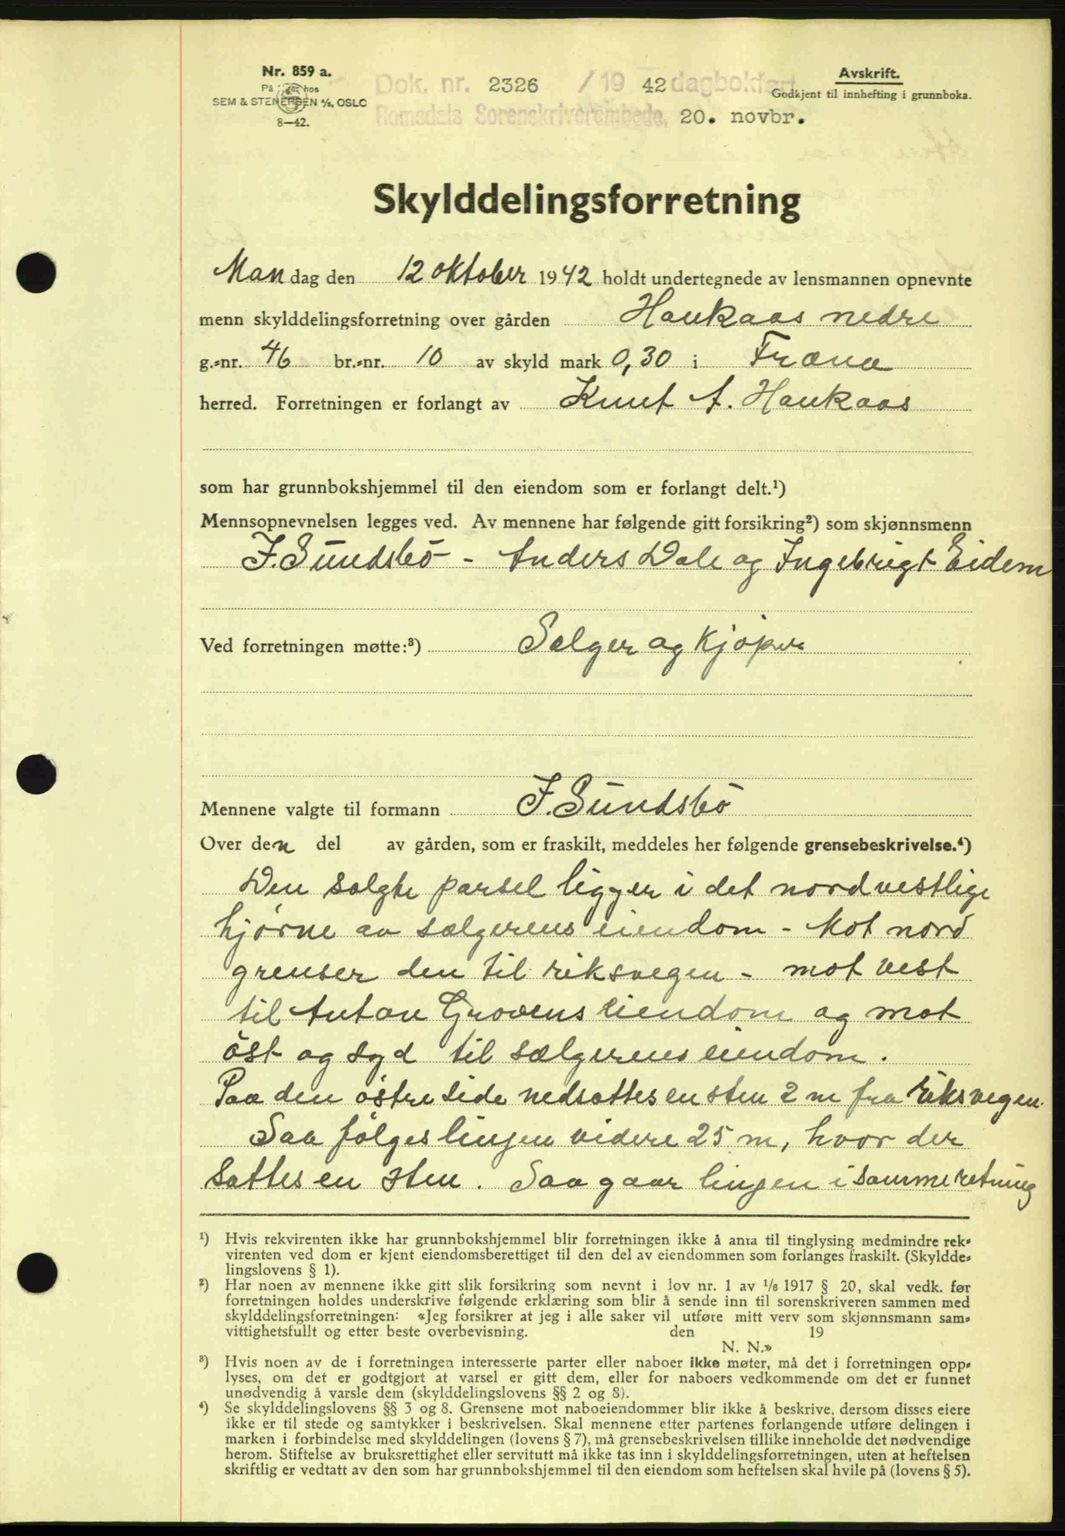 Nr. 859 a.
På lager hos
SEM & STENERSEN A/S, OSLO
8—42.
Dok. nr. 2326 / 19 42 dagbokført
Romsdals Sorenskriverembede, 20. novbr.
Avskrift.
Godkjent til innhefting i grunnboka.
Skylddelingsforretning
Mandag den 12 oktober 1942 holdt undertegnede av lensmannen opnevnte
menn skylddelingsforretning over gården Haukaas nedre
g.-nr. 46 br.-nr. 10 av skyld mark 0,30 i Fræna
herred. Forretningen er forlangt av Knut A. Haukaas
som har grunnbokshjemmel til den eiendom som er forlangt delt.¹)
Mennsopnevnelsen legges ved. Av mennene har følgende gitt forsikring²) som skjønnsmenn
J. Sundsbö - Anders Dale og Ingebrigt Eidem
Ved forretningen møtte:³) Selger og kjöper
Mennene valgte til formann J. Sundsbö
Over den del av gården, som er fraskilt, meddeles her følgende grensebeskrivelse.⁴)
Den solgte parsel ligger i det nordvestlige
hjörne av sælgerens eiendom - Mot nord
grenser den til riksvegen - mot vest
til Anton Grovens eiendom og mot
öst og syd til sælgerens eiendom.
Paa den östre side nedsattes en sten 2 m fra riksvegen.
Saa fölges linjen videre 25 m, hvor der
sattes en sten. Saa gaar linjen i samme retning
¹) Hvis rekvirenten ikke har grunnbokshjemmel blir forretningen ikke å anta til tinglysing medmindre rek-
virenten ved dom er kjent eiendomsberettiget til den del av eiendommen som forlanges fraskilt. (Skyldde-
lingslovens § 1).
²) Har noen av mennene ikke gitt slik forsikring som nevnt i lov nr. 1 av ¹/₆ 1917 § 20, skal vedk. før
forretningen holdes underskrive følgende erklæring som blir å sende inn til sorenskriveren sammen med
skylddelingsforretningen: «Jeg forsikrer at jeg i alle saker vil utføre mitt verv som skjønnsmann sam-
vittighetsfullt og etter beste overbevisning. den 19
N. N.»
³) Hvis noen av de i forretningen interesserte parter eller naboer ikke møter, må det i forretningen opp-
lyses, om det er godtgjort at varsel er gitt dem, eller for naboers vedkommende om det er funnet
unødvendig å varsle dem (skylddelingslovens §§ 2 og 8).
⁴) Se skylddelingslovens §§ 3 og 8. Grensene mot naboeiendommer blir ikke å beskrive, dersom disses eiere
ikke er til stede og samtykker i beskrivelsen. Skal mennene etter partenes forlangende utføre delingen i
marken i forbindelse med skylddelingen (lovens § 7), må grensebeskrivelsen tillike inneholde det nødvendige
herom. Stiftelse av bruksrettighet eller servitutt må ikke tas inn i skylddelingsforretningen, uten at heftelsen
skriftlig er vedtatt av den som har grunnbokshjemmel til den eiendom som heftelsen skal hvile på (lovens § 5).